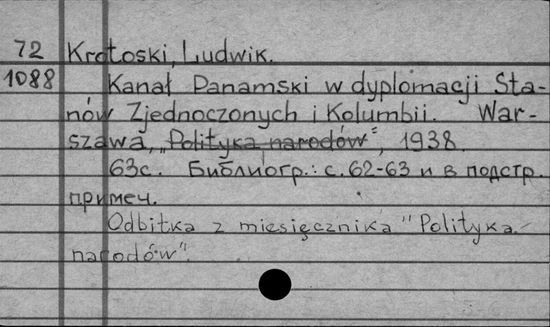 72 Krotoski, Ludwik.
1088 Kanał Panamski w dyplomacji Sta-
nów Zjednoczonych i Kolumbii. War-
szawa, „Polityka narodów", 1938.
63с. Библиогр.: с. 62-63 и в подстр.
примеч.
Odbitka z miesięcznika "Polityka
narodów".